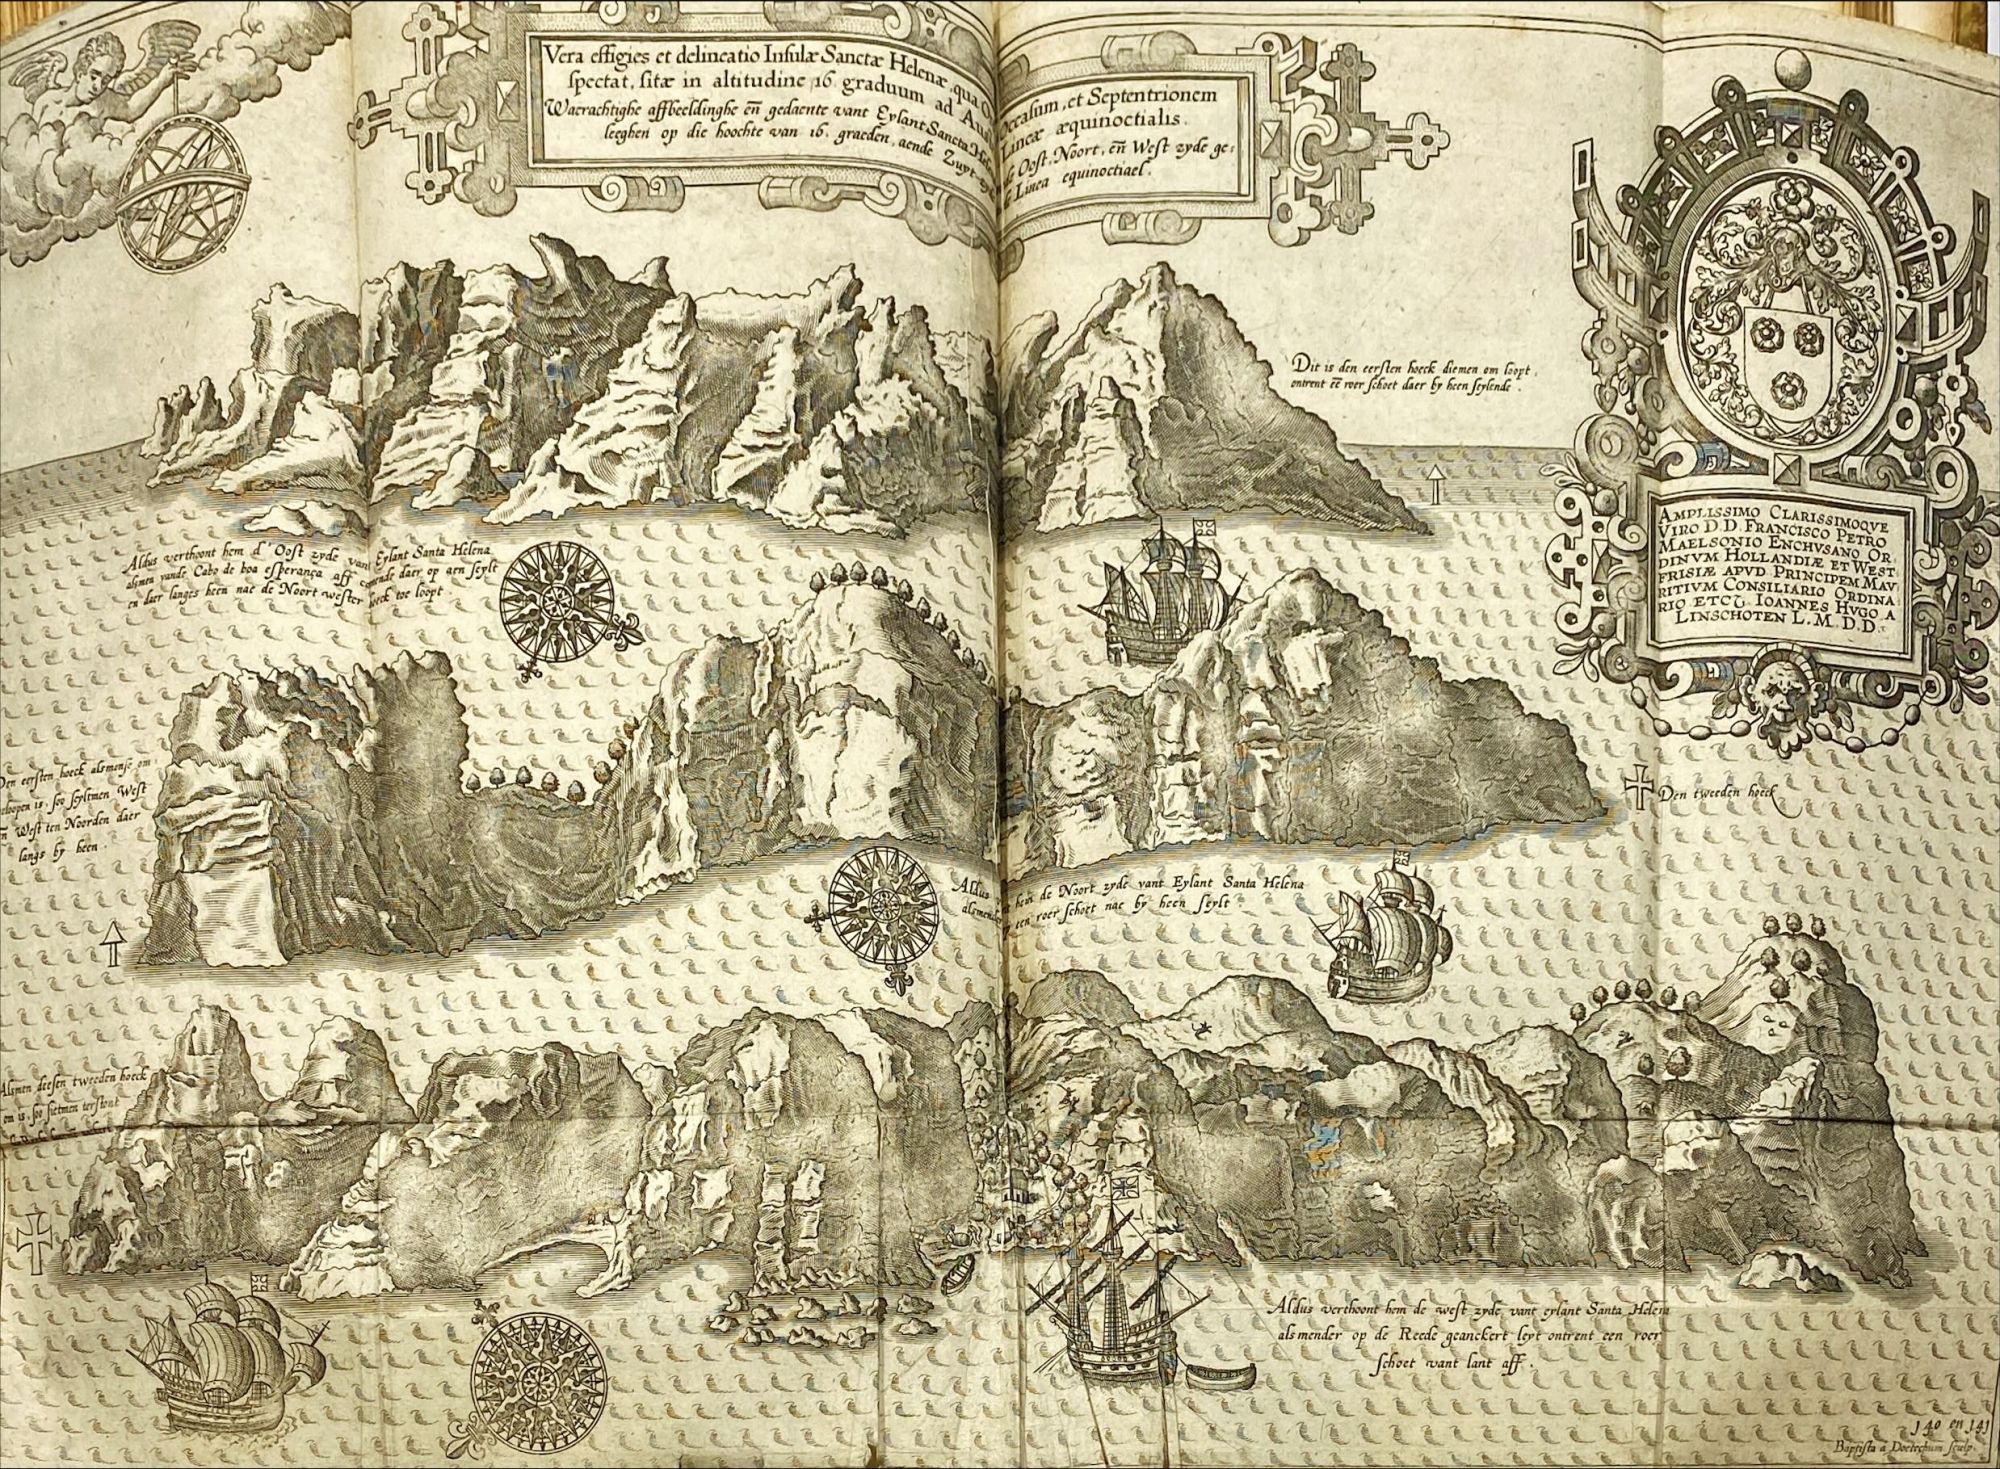 Vera effigies et delineatio Insulæ Sanctæ Helenæ, qua Occasum, et Septentrionem
spectat, sitæ in altitudine 16 graduum ad Lineæ æquinoctialis.
Waerachtighe affbeeldinghe eñ gedaente vant Eylant Sancta Oost, Noort, eñ West zyde ge:
leeghen op die hoochte van 16. graeden, aende Zuyt Linea equinoctiael.
Dit is den eersten hoeck diemen om loopt,
ontrent eē roer schoet daer by heen seylende.
AMPLISSIMO CLARISSIMOQVE
VIRO D.D. FRANCISCO PETRO
MAELSONIO ENCHVSANO OR.
DINVM HOLLANDIÆ ET WEST
FRISIÆ APVD PRINCIPEM MAV
RITIVM CONSILIARIO ORDINA
RIO ETC. IOANNES HVGO A
LINSCHOTEN L.M.D.D.
Aldus verthoont hem d' Oost zyde vant Eylant Santa Helena
alsmen vande Cabo de boa esperança aff comende daer op aen seylt
en daer langes heen nae de Noort wester hoeck toe loopt
Den eersten hoeck alsmense om
geloopen is, soo seyltmen West
eñ West ten Noorden daer
langs by heen.
Den tweeden hoeck
Aldus hem de Noort zyde vant Eylant Santa Helena
alsmen een roer schoet nae by heen seylt
Alsmen deesen tweeden hoeck
om is, soo sietmen terstont
Aldus verthoont hem de west zyde vant eylant Santa Helena
als mender op de Reede geanckert leyt ontrent een roer
schoet vant lant aff.
140 en 141
Baptista à Doetechum sculp.